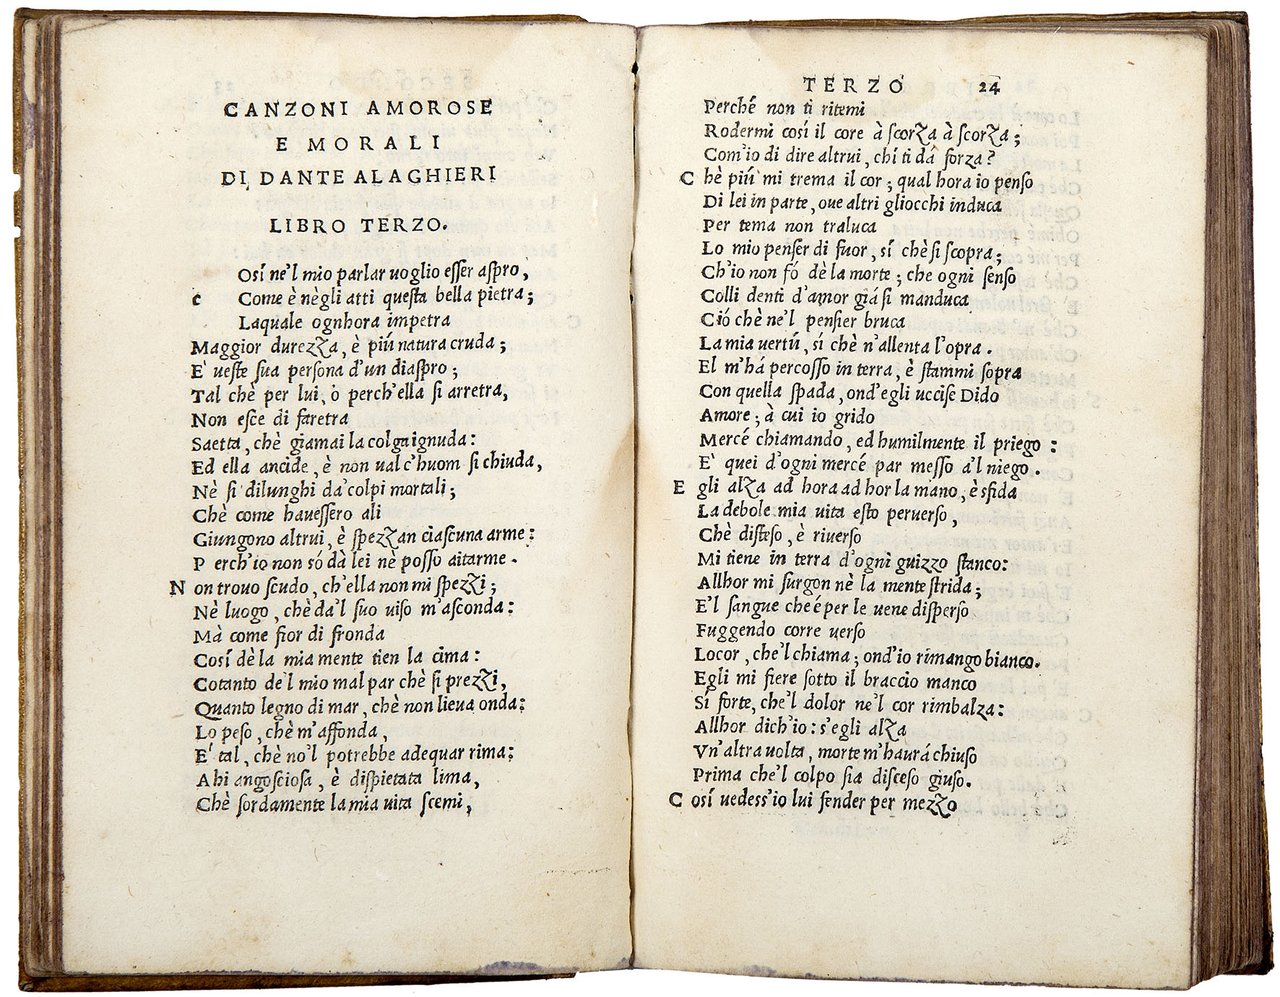 CANZONI AMOROSE
E MORALI
DI DANTE ALAGHIERI
LIBRO TERZO.
c Osí ne'l mio parlar uoglio eſſer aſpro,
Come è nègli atti queſta bella pietra;
Laquale ognhora impetra
Maggior durezza, è piú natura cruda;
E' ueſte ſua perſona d'un diaſpro;
Tal chè per lui, ò perch'ella ſi arretra,
Non eſce di faretra
Saetta, chè giamai la colga ignuda:
Ed ella ancide, è non ual c'huom ſi chiuda,
Nè ſi dilunghi da' colpi mortali;
Chè come haueſſero ali
Giungono altrui, è ſpezzan ciaſcuna arme:
P erch'io non só dà lei nè poſſo aitarme.
N on trouo ſcudo, ch'ella non mi ſpezzi;
Nè luogo, chè da'l ſuo uiſo m'aſconda:
Mà come fior di fronda
Cosí dè la mia mente tien la cima:
Cotanto de'l mio mal par chè ſi prezzi,
Quanto legno di mar, chè non lieua onda:
Lo peſo, chè m'affonda,
E' tal, chè no'l potrebbe adequar rima:
Ahi angoſcioſa, è diſpietata lima,
Chè ſordamente la mia uita ſcemi,
TERZO 24
Perché non ti ritemi
Rodermi cosí il core à ſcorza à ſcorza;
Com'io di dire altrui, chi ti dà forza?
C hè piú mi trema il cor; qual hora io penſo
Di lei in parte, oue altri gliocchi induca
Per tema non traluca
Lo mio penſer di fuor, sí chè ſi ſcopra;
Ch'io non fó dè la morte; che ogni ſenſo
Colli denti d'amor giá ſi manduca
Ció chè ne'l penſier bruca
La mia uertú, sí chè n'allenta l'opra.
El m'há percoſſo in terra, è ſtammi ſopra
Con quella ſpada, ond'egli ucciſe Dido
Amore; à cui io grido
Mercé chiamando, ed humilmente il priego:
E' quei d'ogni mercé par meſſo a'l niego.
E gli alza ad hora ad hor la mano, è sfida
La debole mia uita eſto peruerſo,
Chè diſteſo, è riuerſo
Mi tiene in terra d'ogni guizzo ſtanco:
Allhor mi ſurgon nè la mente ſtrida;
E'l ſangue che é per le uene diſperſo
Fuggendo corre uerſo
Locor, che'l chiama; ond'io rimango bianco.
Egli mi fiere ſotto il braccio manco
Si forte, che'l dolor ne'l cor rimbalza:
Allhor dich'io: s'egli alza
Vn'altra uolta, morte m'haurá chiuſo
Prima che'l colpo ſia diſceſo giuſo.
C osí uedeſſ'io lui fender per mezzo